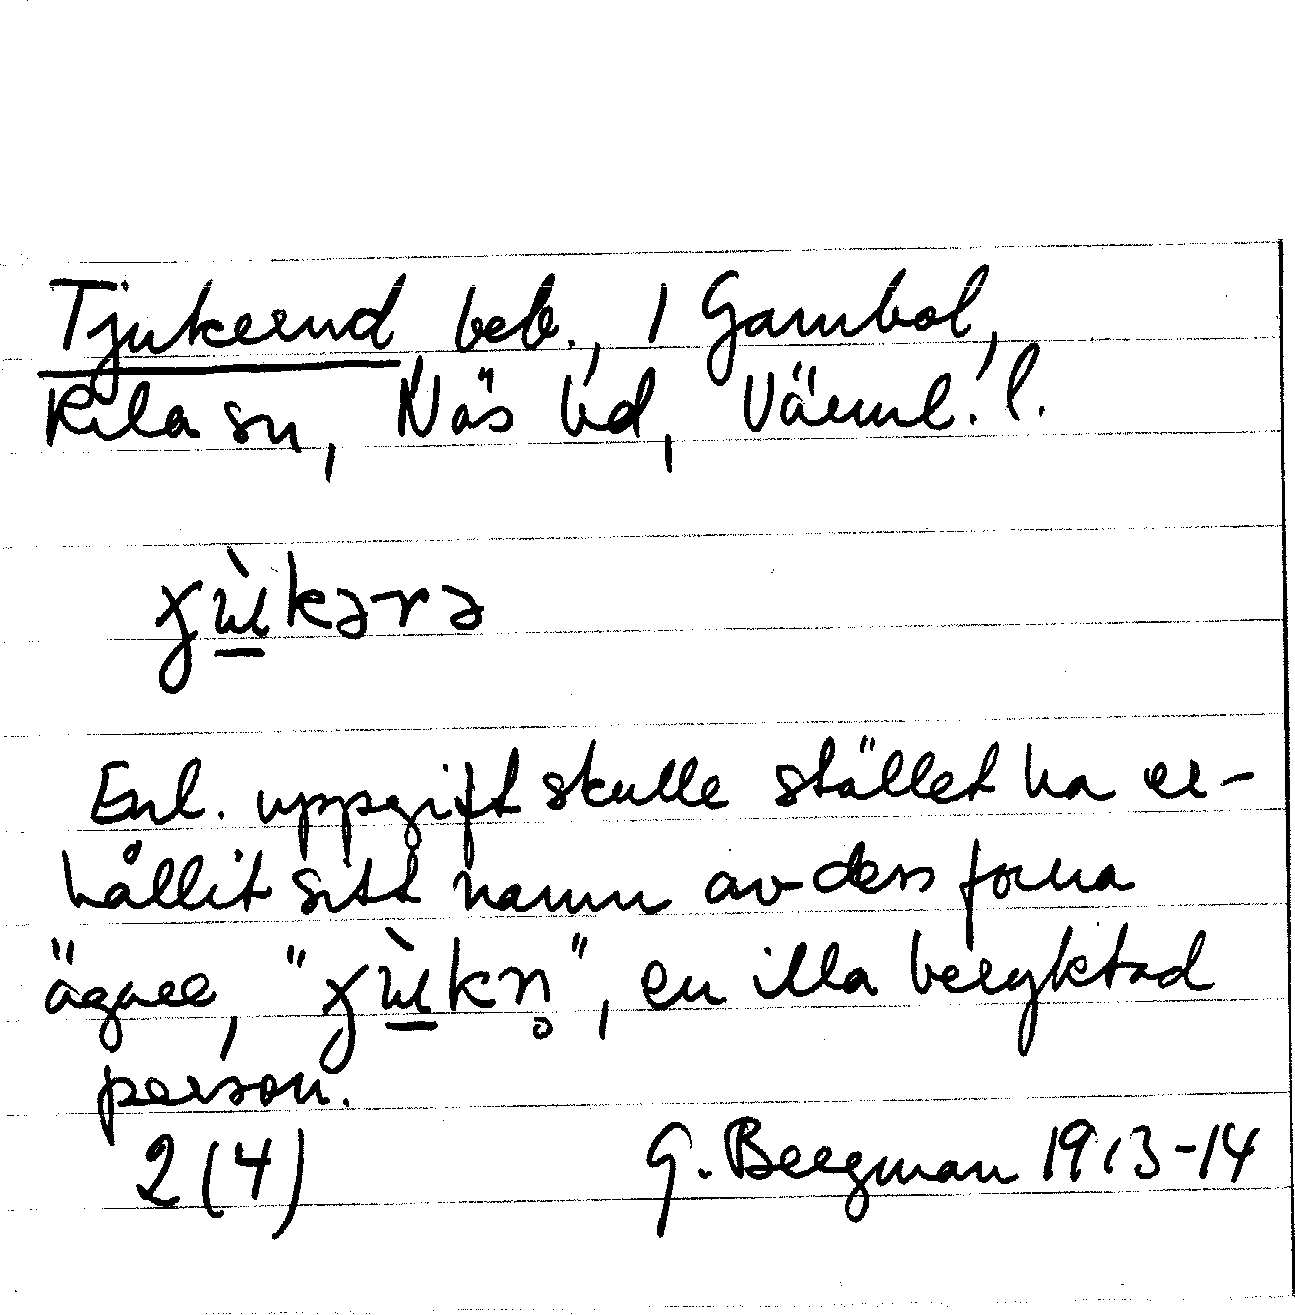 Tjukerud beb., i Gambol,
Kila sn, Näs hd, Värml. l.
Enl. uppgift skulle stället ha er-
hållit sitt namn av dess forna
ägare, en illa beryktad
person.
2 (4) G. Bergman 1913-14